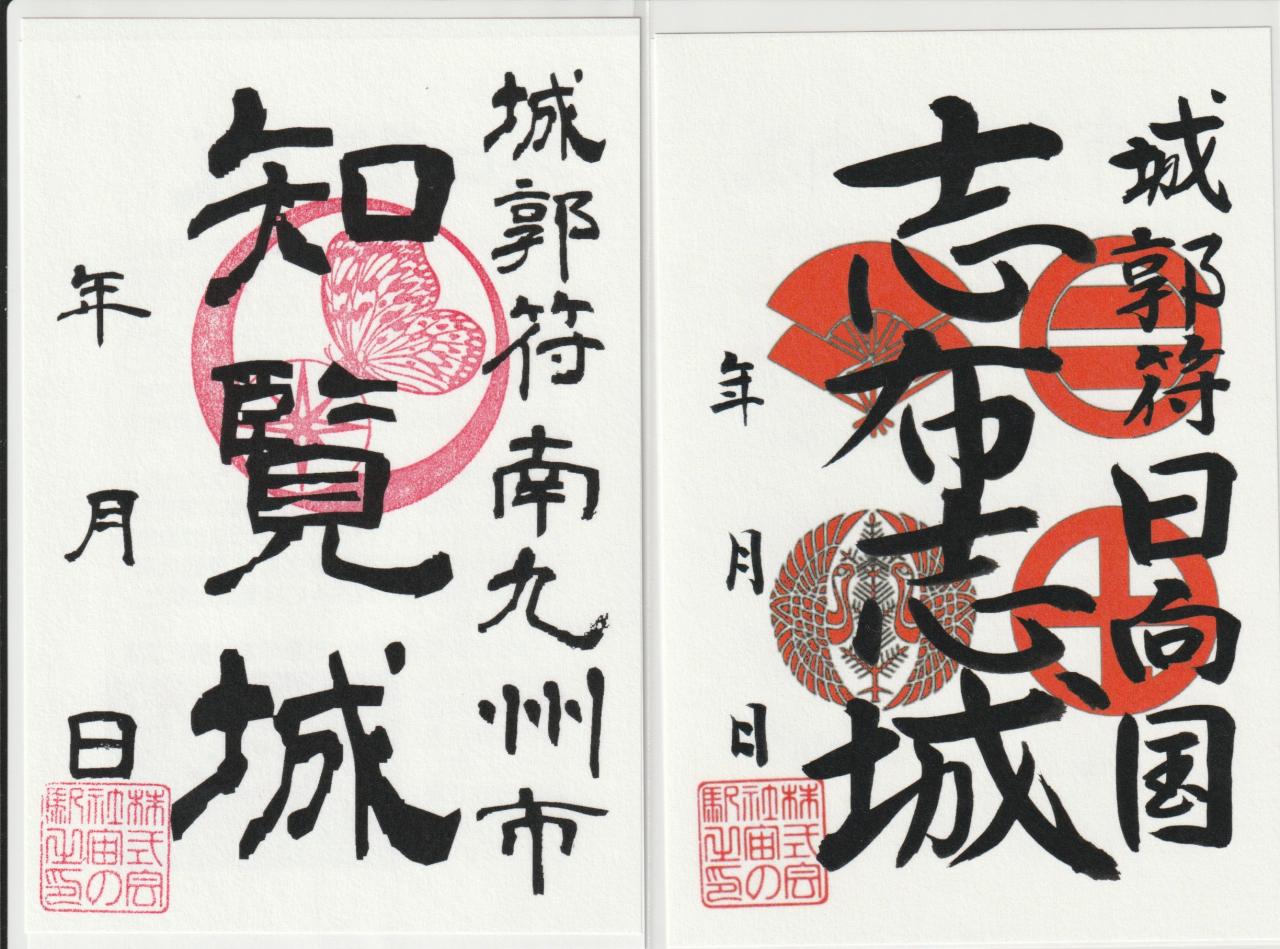 城郭符 南九州市
知覧城
年 月 日
株式会
社宙の
駅之印
城郭符 日向国
志布志城
年 月 日
株式会
社宙の
駅之印